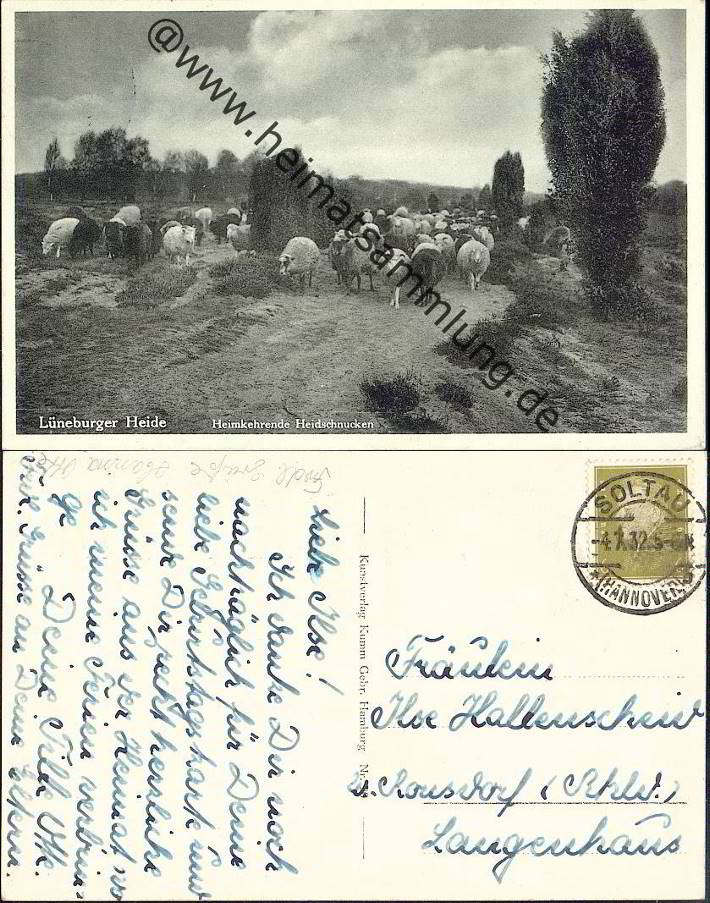 @www.heimatsammlung.de
Lüneburger Heide
Heimkehrende Heidschnucken
Liebe Ilse!
Ich danke Dir noch
nachträglich für Deine
liebe Geburtstagskarte und
sende Dir jetzt herzliche
Grüsse aus der Heimat wo
ich meine Ferien verbrin-
ge
Deine Tilde
Grüsse an Deine Eltern.
Kunstverlag Kumm Gebr. Hamburg Nr.
SOLTAU
-4.7.32.5-6N
(HANNOVER)
Fräulein
Ilse Hallenscheid
Ronsdorf (Rhld.)
Langenhaus